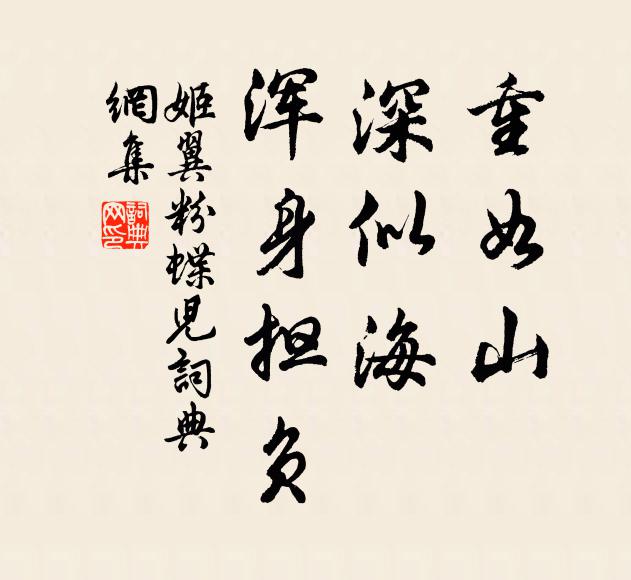 重如山
深似海
浑身担负
姬翼粉蝶児詞典
網集
詞典
网印